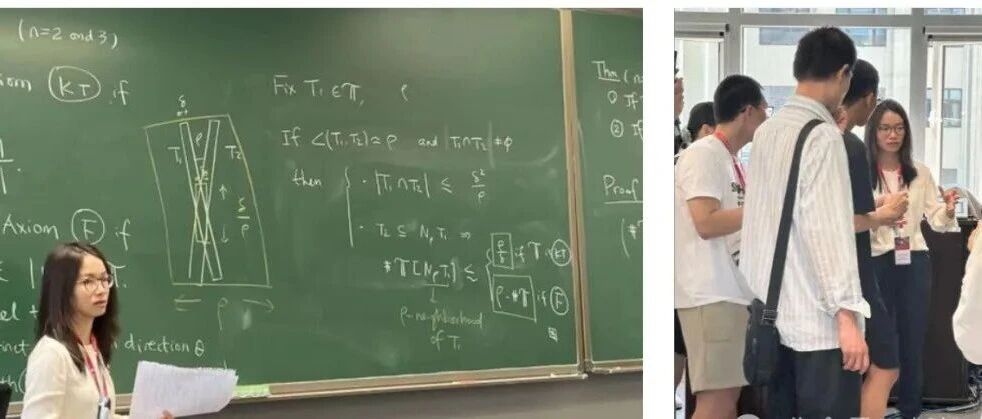 (n=2 and 3)
Axiom (KT) if
Axiom (F) if
direction θ
δ
ρ
T₁
T₂
δ/ρ
ρ
Fix T₁ ∈ 𝕋, ρ
If ∠(T₁,T₂) ≈ ρ and T₁∩T₂ ≠ ϕ
then
· |T₁ ∩ T₂| ≲ δ²/ρ
· T₂ ⊆ N_ρ T₁ ⇒
#𝕋[N_ρ T₁] ≲
ρ/δ if 𝕋 is (KT)
ρ · #𝕋 if (F)
ρ-neighborhood
of T₁
Thm
① If
② If
Proof